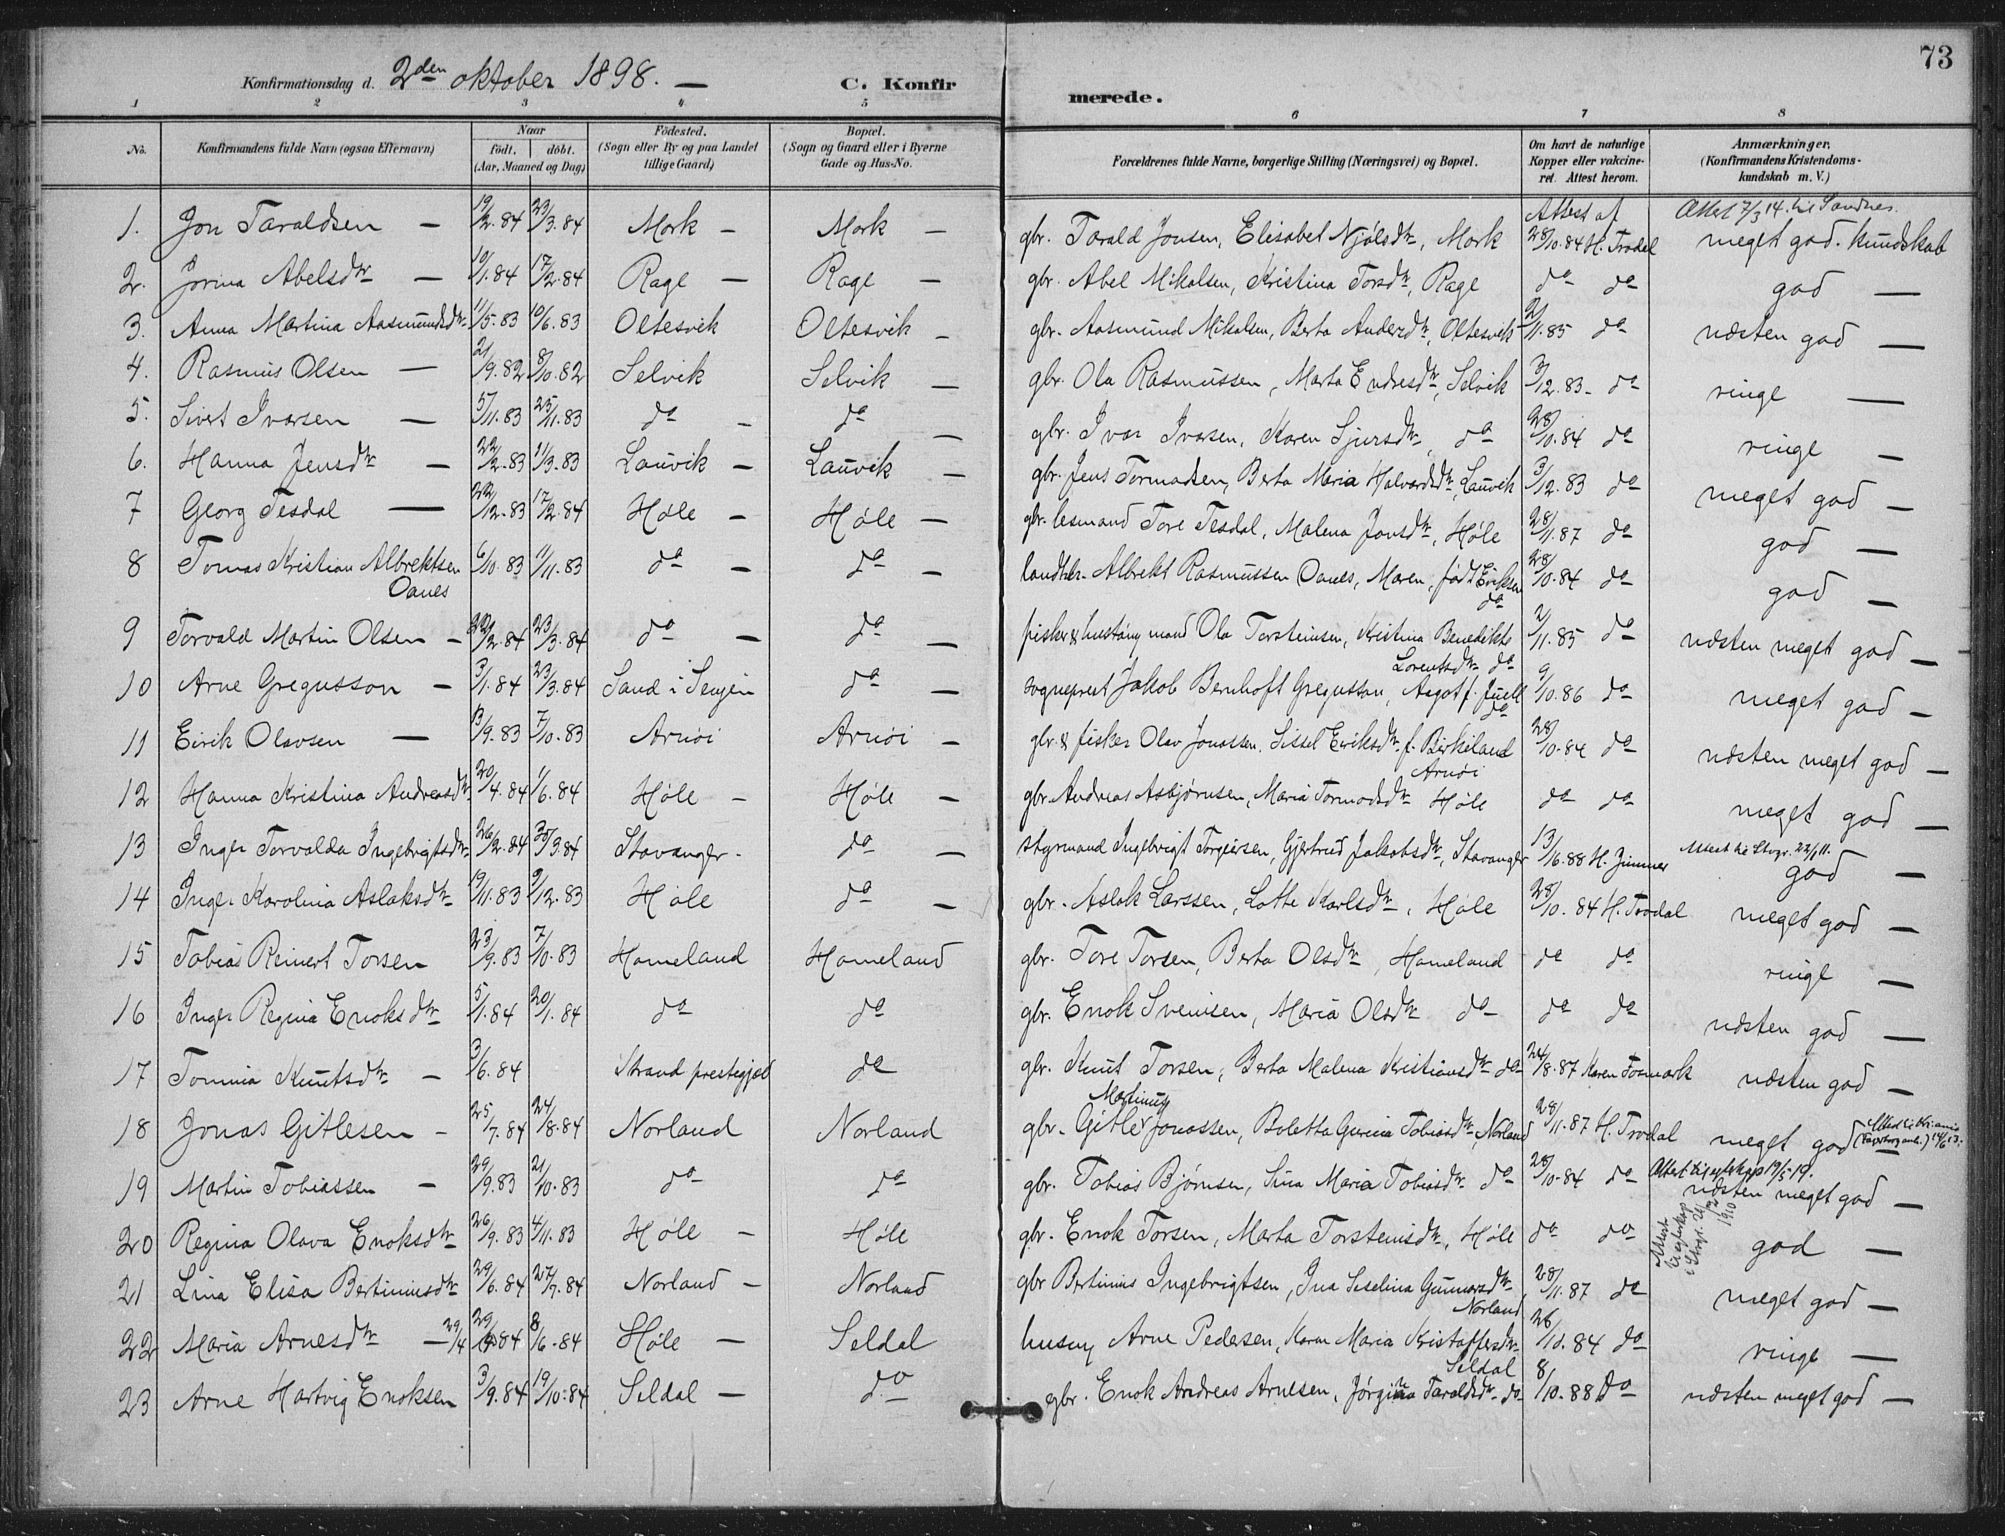 73
Konfirmationsdag d. 2den oktober 1898. —
C. Konfirmerede.
1 2 3 4 5 6 7 8
No. Konfirmandens fulde Navn (ogsaa Efternavn) Naar födt. döbt. (Aar, Maaned og Dag) Födested. (Sogn eller By og paa Landet tillige Gaard) Bopæl. (Sogn og Gaard eller i Byerne Gade og Hus-No. Forældrenes fulde Navne, borgerlige Stilling (Næringsvei) og Bopæl. Om havt de naturlige Kopper eller vakcineret. Attest herom. Anmærkninger. (Konfirmandens Kristendomskundskab m. V.)
Attest af Attest 7/3 14. til Sandnes.
1. Jon Taraldsen — 19/2.84 23/3.84 Mork — Mork — gbr. Tarald Jonsen, Elisabet Njølsdtr, Mork 28/10.84 H. Trodal meget god. kundskab
2. Jorina Abelsdtr — 10/1.84 17/2.84 Rage — Rage — gbr. Abel Mikalsen, Kristina Torsdtr, Rage do do god —
3. Anna Martina Aasmundsdtr 11/5.83 10/6.83 Oltesvik Oltesvik — gbr. Aasmund Mikalsen, Berta Andersdtr, Oltesvik 2/11.85 do næsten god —
4. Rasmus Olsen — 21/9.82 8/10.82 Selvik Selvik — gbr. Ola Rasmussen, Marta Endresdtr, Selvik 3/12.83 - do ringe —
5. Sivert Ivarsen — 5/11.83 25/11.83 do — do — gbr. Ivar Ivarsen, Karen Sjursdtr, do 28/10.84 do ringe —
6. Hanna Jensdtr — 22/2.83 11/3.83 Lauvik — Lauvik — gbr. Jens Tormodsen, Berta Maria Halvardsdtr, Lauvik 3/12.83 do meget god —
7 Georg Tesdal — 22/12.83 17/2.84 Høle — Høle — gbr. lesmand Tore Tesdal, Malena Jonsdtr, Høle 28/11.87 do god —
8 Tomas Kristian Albrektsen Oanes 6/10.83 11/11.83 do — do — Albrekt Rasmussen Oanes, Maren, født Eriksen do 28/10.84 do god —
9 Torvald Martin Olsen — 22/2.84 23/3.84 do — do — fisker & Ola Torsteinsen, Kristina Benedikte Lorentsdtr do 2/11.85 do næsten meget god —
10 Arne Gregusson — 3/1.84 23/3.84 Sand i Senjen do — sogneprest Jakob Bernhoft Gregusson, Aagot f. Juell do 9/10.86 do meget god —
11 Eirik Olavsen — 13/9.83 7/10.83 Arnøi Arnøi — gbr & fisker Olav Jonassen, Sissel Eiriksdtr, f. Birkeland Arnøi 28/10.84 do næsten meget god —
12 Hanna Kristina Andreasdtr 20/4.84 1/6.84 Høle — Høle — gbr. Andreas Asbjørnsen, Maria Tormodsdtr Høle do do meget god —
13 Inger Torvalda Ingebrigtsdtr 26/2.84 30/3.84 Stavanger - do — styrmand Ingebrigt Torgersen, Gjertrud Jakobsdtr, Stavanger 13/16.88 H. Zimmer god —
14 Inger Karolina Aslaksdtr 19/11.83 9/12.83 Høle do — gbr. Aslak Larssen, Lotte Karlsdtr, Høle 28/10.84 H. Trodal meget god —
15 Tobias Reinert Torsen 23/9.83 7/10.83 Hameland Hameland gbr. Tore Torsen, Berta Olsdtr, Hameland do do ringe —
16 Inger Regina Enoksdtr 5/1.84 20/1.84 do do gbr. Enok Sveinsen, Maria Olsdtr do do do næsten god —
17 Tomina Knutsdtr — 3/6.84 Strand prestegjæl do gbr. Knut Torsen, Berta Malena Kristiansdtr do 24/8.87 Karen Fosmark næsten god —
18 Jonas Gitlesen - 25/7.84 24/8.84 Norland Norland gbr. Gitle Martinus Jonassen, Boletta Gurina Tobiasdtr, Norland 28/11.87 H. Trodal meget god —
19 Martin Tobiassen - 29/9.83 21/10.83 do do gbr. Tobias Bjørnsen, Sina Maria Tobiasdtr do 28/10.84 do næsten meget god —
20 Regina Olava Enoksdtr 26/9.83 4/11.83 Høle — Høle gbr. Enok Torsen, Marta Torsteinsdtr, Høle do do god —
21 Lina Elisa Bertiniusdtr 29/6.84 27/7.84 Norland — Norland gbr Bertinius Ingebrigtsen, Ina Siselina Gunnarsdtr, Norland 28/11.87 do meget god —
22 Maria Arnesdtr — 29/4 .84 8/6.84 Høle — Seldal Arne Pedersen, Karen Maria Kristoffersdtr Seldal 26/10.84 do ringe —
23 Arne Hartvig Enoksen 3/9.84 19/10.84 Seldal — do gbr. Enok Andreas Arnesen, Jørgina Taraldsdtr do 8/10.88 do næsten meget god —